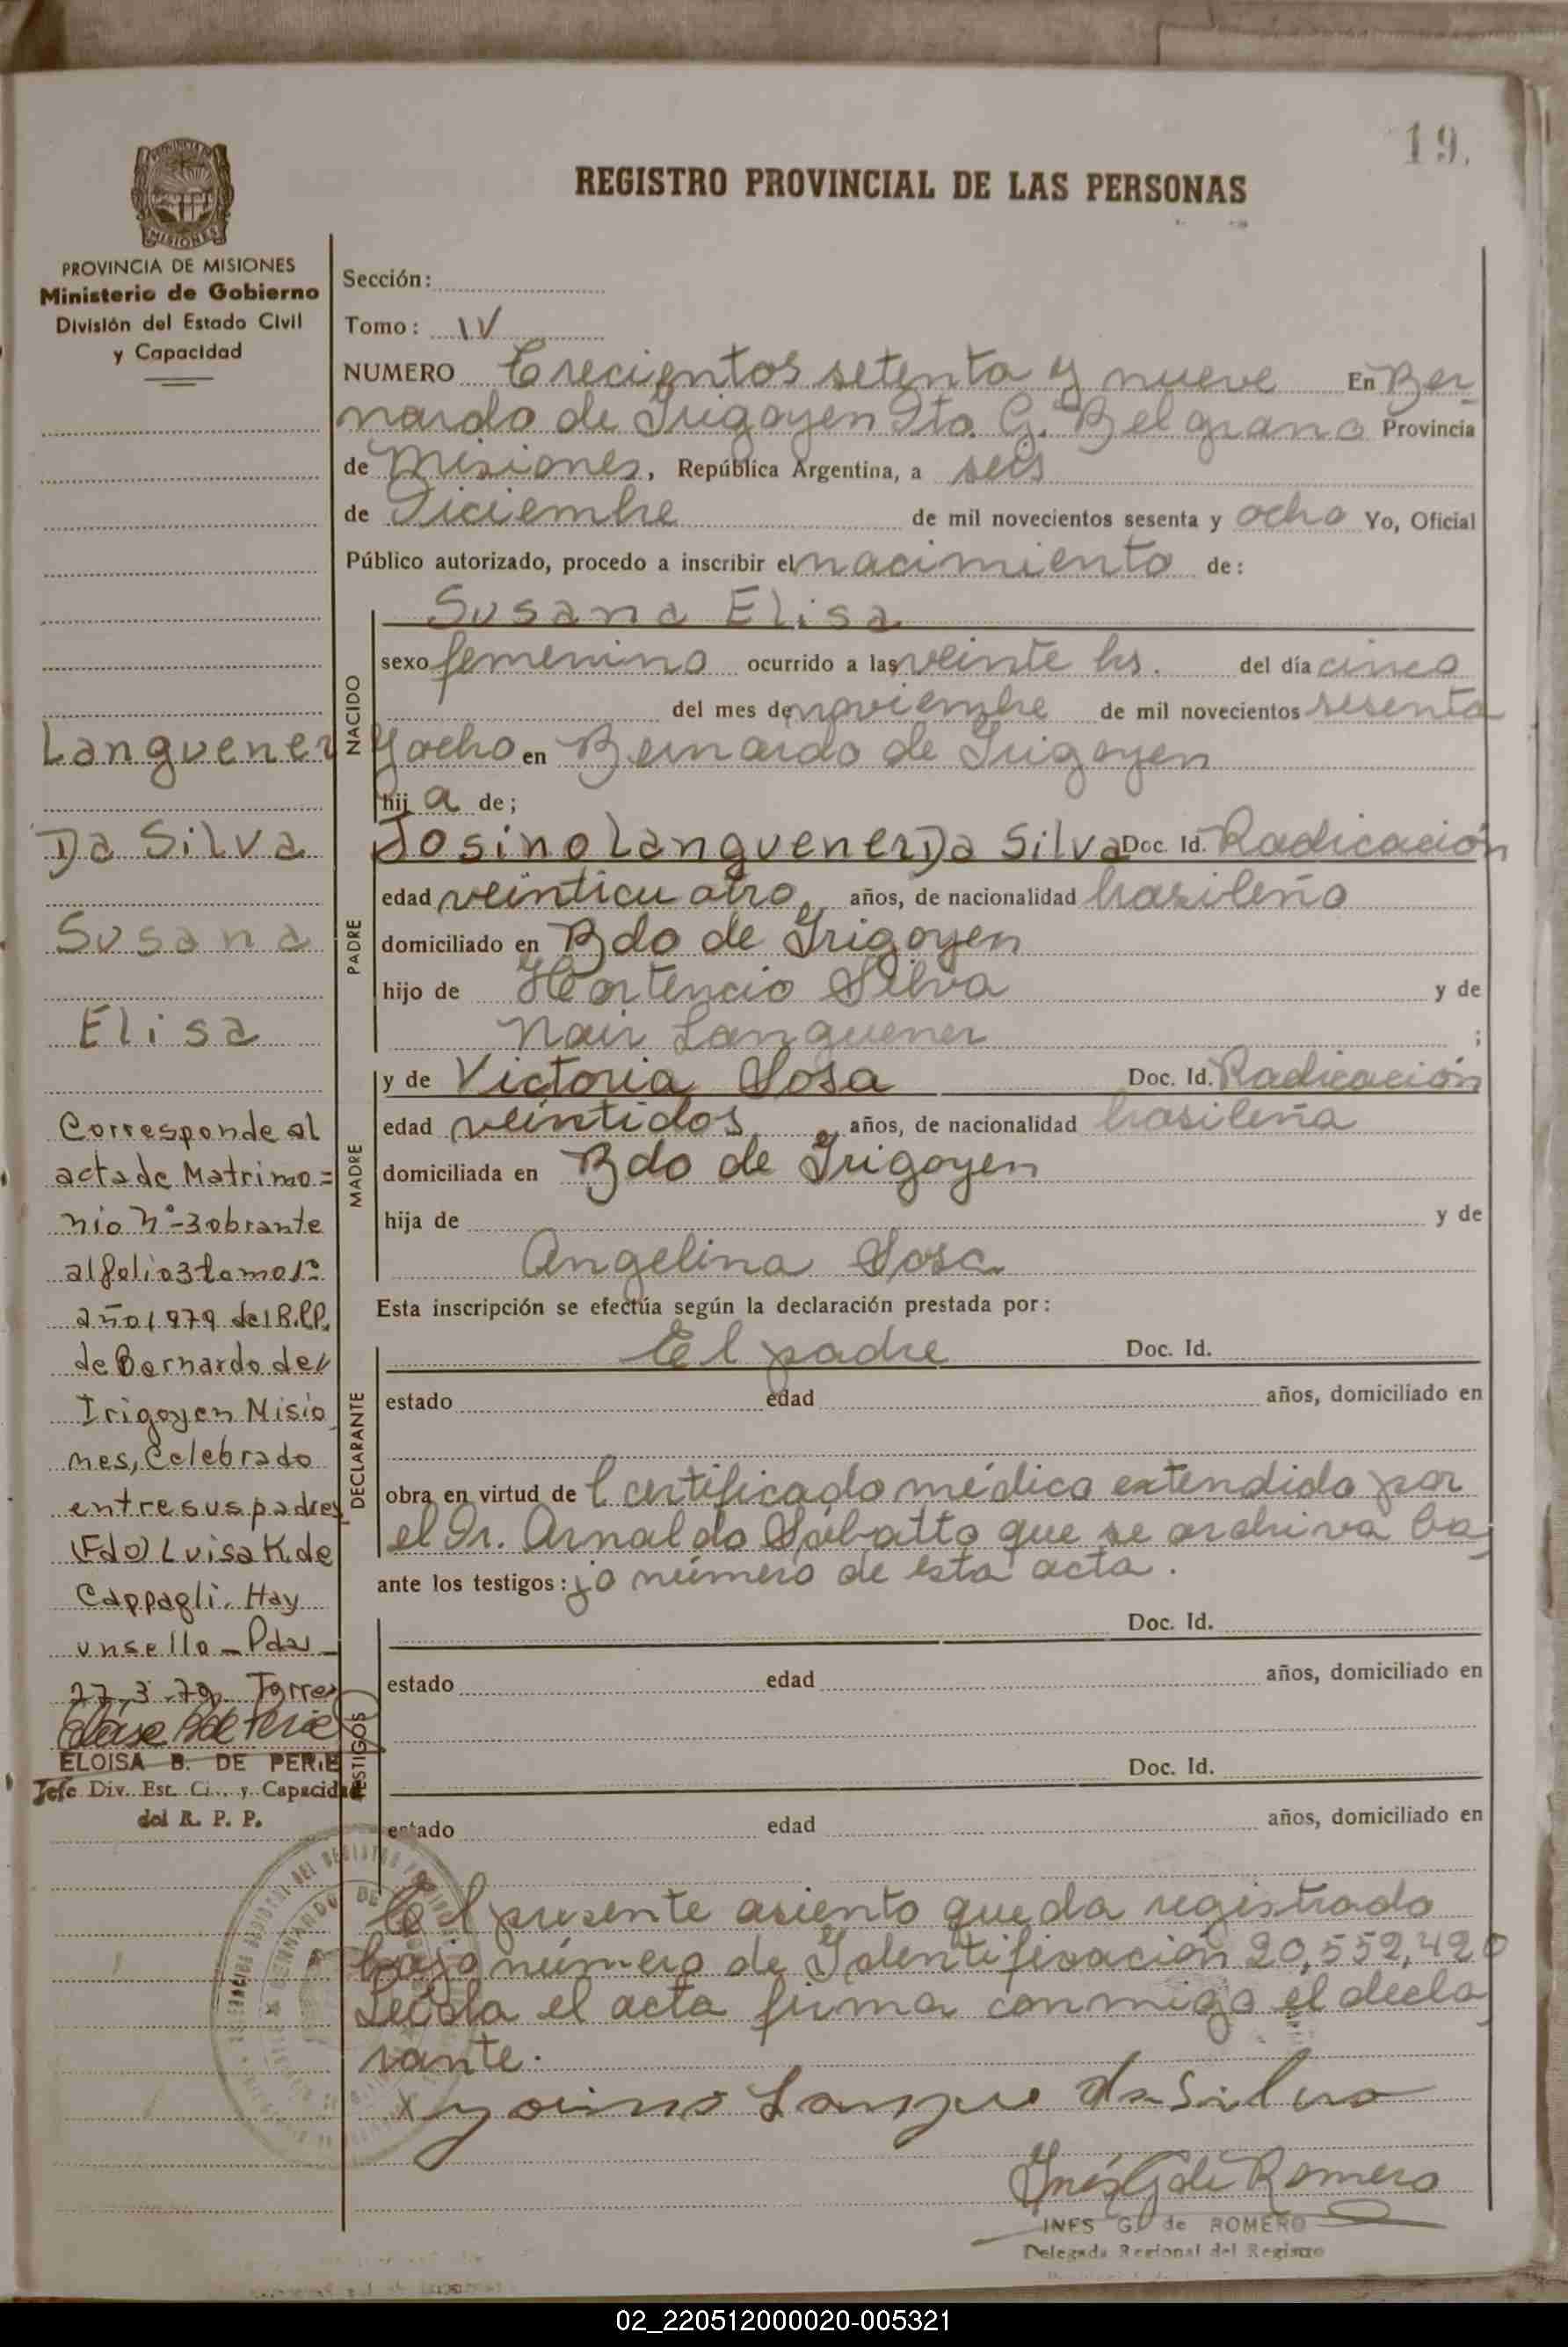 19.
REGISTRO PROVINCIAL DE LAS PERSONAS
PROVINCIA DE MISIONES
Ministerio de Gobierno
División del Estado Civil
y Capacidad
Languener
Da Silva
Susana
Elisa
Corresponde al
acta de Matrimo=
nio nº-3 obrante
al folio 3 tomo 1º
año 1979 del R.P.P.
de Bernardo de
Irigoyen Misio
nes, Celebrado
entre sus padres
(Fdo) Luisa K. de
Cappagli. Hay
un sello _ Pdas _
27.3.79. Torres
ELOISA B. DE PERIE
Jefe Div. Est. Ci.. y Capacidad
del R. P. P.
Sección:
Tomo: IV
NUMERO Trecientos setenta y nueve En Ber_
nardo de Irigoyen Dto. G. Belgrano Provincia
de Misiones, República Argentina, a seis
de Diciembre de mil novecientos sesenta y ocho Yo, Oficial
Público autorizado, procedo a inscribir el nacimiento de:
NACIDO
Susana Elisa
sexo femenino ocurrido a las veinte hs. del día cinco
del mes de noviembre de mil novecientos sesenta
y ocho en Bernardo de Irigoyen
hij a de;
PADRE
Josino Languener Da Silva Doc. Id. Radicación
edad veinticuatro años, de nacionalidad brasileño
domiciliado en Bdo de Irigoyen
hijo de Hortencio Silva y de
Nair Languener ;
MADRE
y de Victoria Sosa Doc. Id. Radicación
edad veintidos años, de nacionalidad brasileña
domiciliada en Bdo de Irigoyen
hija de y de
Angelina Sosa
Esta inscripción se efectúa según la declaración prestada por:
DECLARANTE
El padre Doc. Id.
estado edad años, domiciliado en
obra en virtud de l certificado médico extendido por
el Dr. Arnaldo Sabatto que se archiva ba
ante los testigos: jo número de esta acta.
TESTIGOS
Doc. Id.
estado edad años, domiciliado en
Doc. Id.
estado edad años, domiciliado en
El presente asiento queda registrado
bajo número de Identificación 20,552,420
Leída el acta firma conmigo el decla
rante.
x Josino Langue da Silva
Inés G de Romero
INES G. de ROMERO
Delegada Regional del Registro
02_220512000020-005321